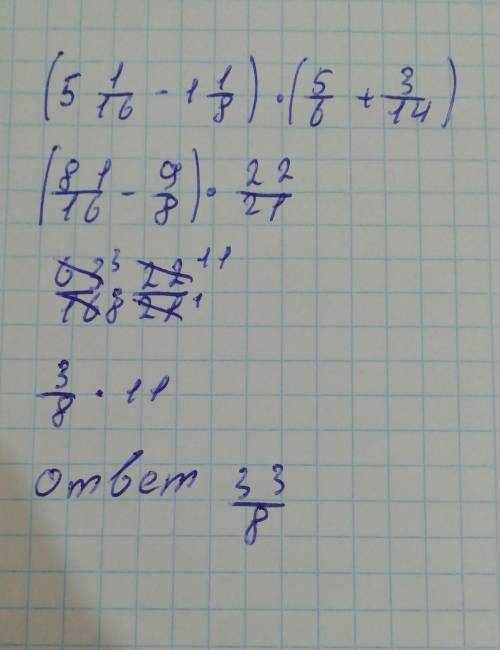 (5 1/16 - 1 1/8) · (5/6 + 3/14)
(81/16 - 9/8) · 22/21
63 3/16 8 22 11/21 1
3/8 · 11
ответ 33/8